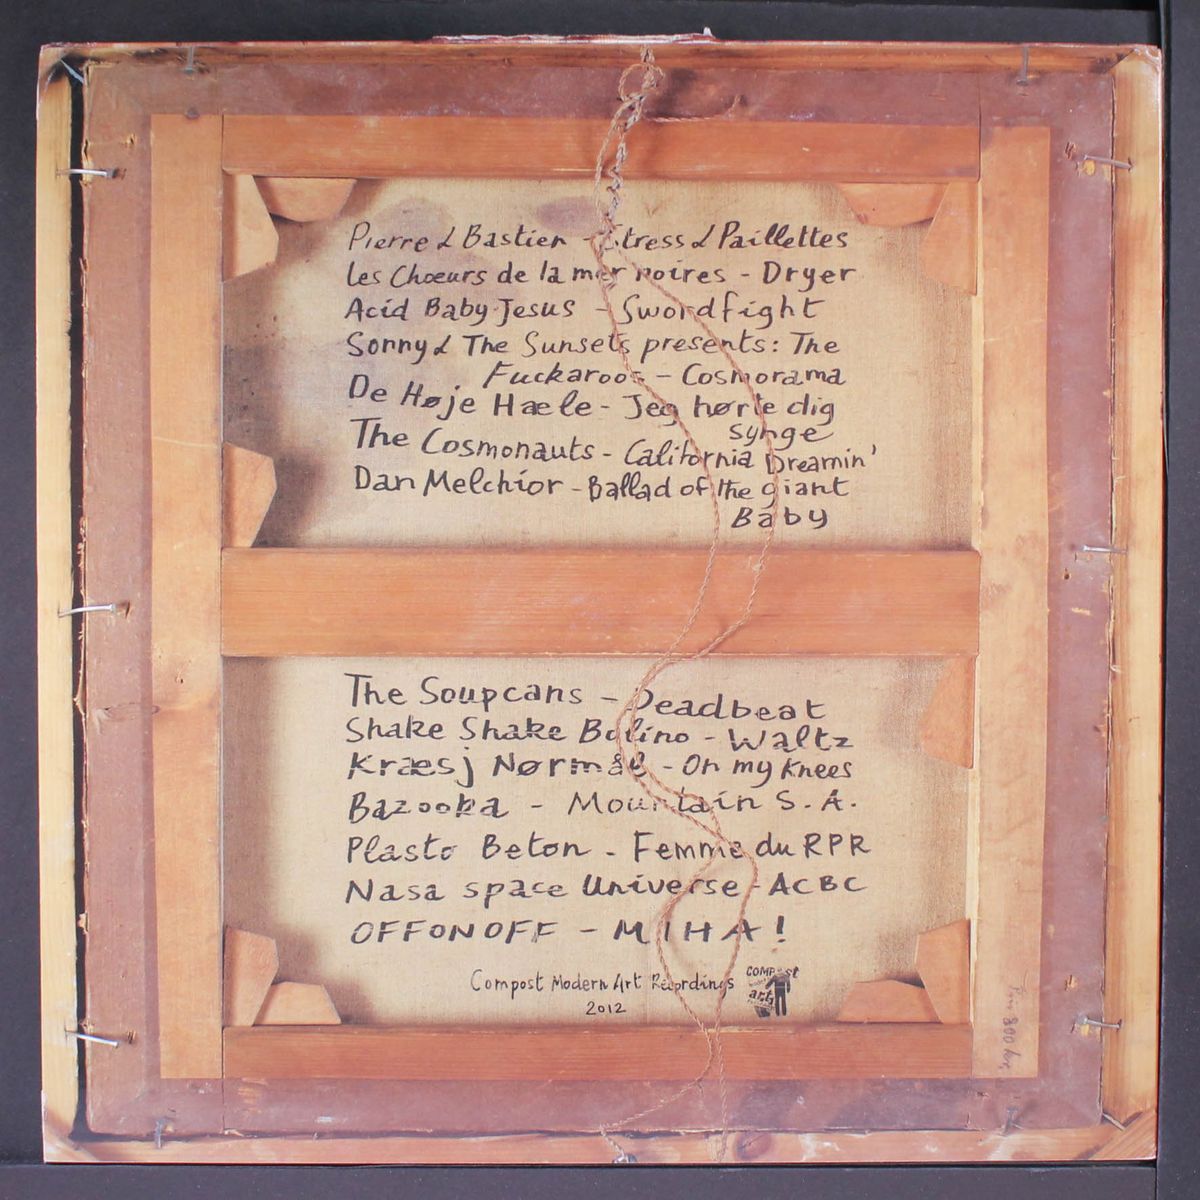 Pierre & Bastien - Stress & Paillettes
Les Chœurs de la mer noires - Dryer
Acid Baby Jesus - Swordfight
Sonny & The Sunsets presents: The
Fuckaroos - Cosmorama
De Høje Hæle - Jeg hørte dig
synge
The Cosmonauts - California Dreamin'
Dan Melchior - Ballad of the giant
Baby
The Soupcans - Deadbeat
Shake Shake Bolino - Waltz
Kræsj Nørmål - On my knees
Bazooka - Mountain S.A.
Plasto Beton - Femme du RPR
Nasa space Universe - ACBC
OFFONOFF - MIHA!
Compost Modern Art Recordings
2012
COMPOST
art